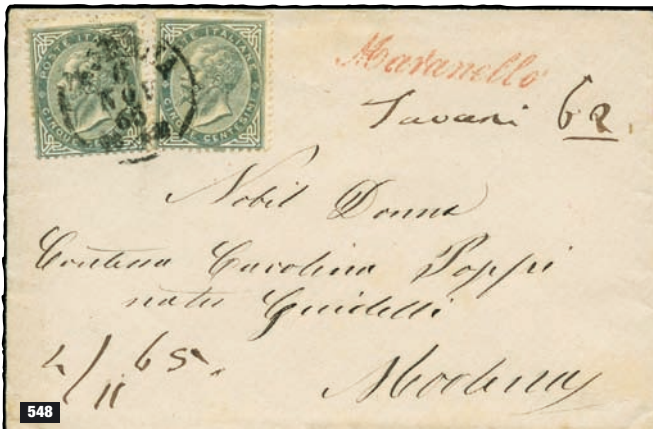 POSTE ITALIANE
CINQUE CENTESIMI
NOV
65
POSTE ITALIANE
CINQUE CENTESIMI
Maranello
62
Nobil Donna
Contessa Carolina Poppi
nata Guidelli
4/11 65.
Modena
548